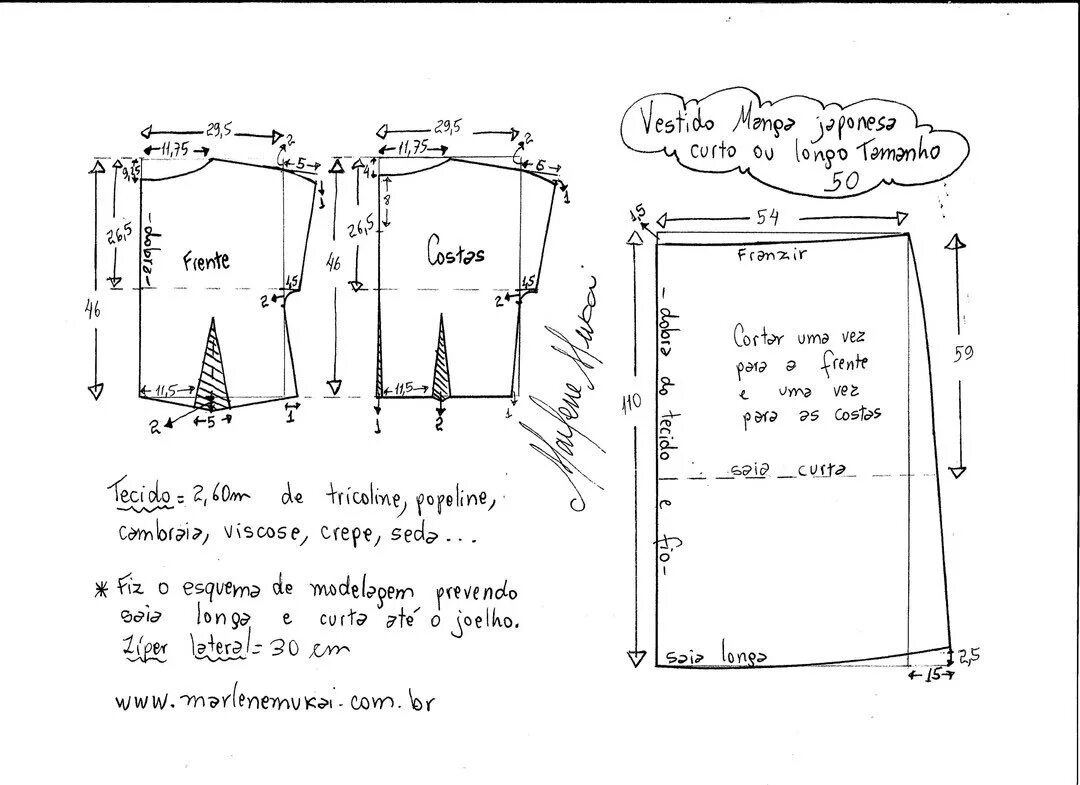 Vestido Manga japonesa
curto ou longo Tamanho
50
29,5
11,75
2
5
9,25
1
26,5
-dobra-
Frente
46
1,5
2
11,5
2
5
1
29,5
11,75
2
6
4
8
1
26,5
Costas
46
1,5
2
11,5
1
2
1
Marlene Mukai
1,5
54
Franzir
-dobra do tecido e fio-
Cortar uma vez
para a frente
e uma vez
para as costas
59
110
saia curta
saia longa
2,5
15
Tecido = 2,60m de tricoline, popeline,
cambraia, viscose, crepe, seda...
* Fiz o esquema de modelagem prevendo
saia longa e curta até o joelho.
Zíper lateral = 30 cm
www.marlenemukai.com.br